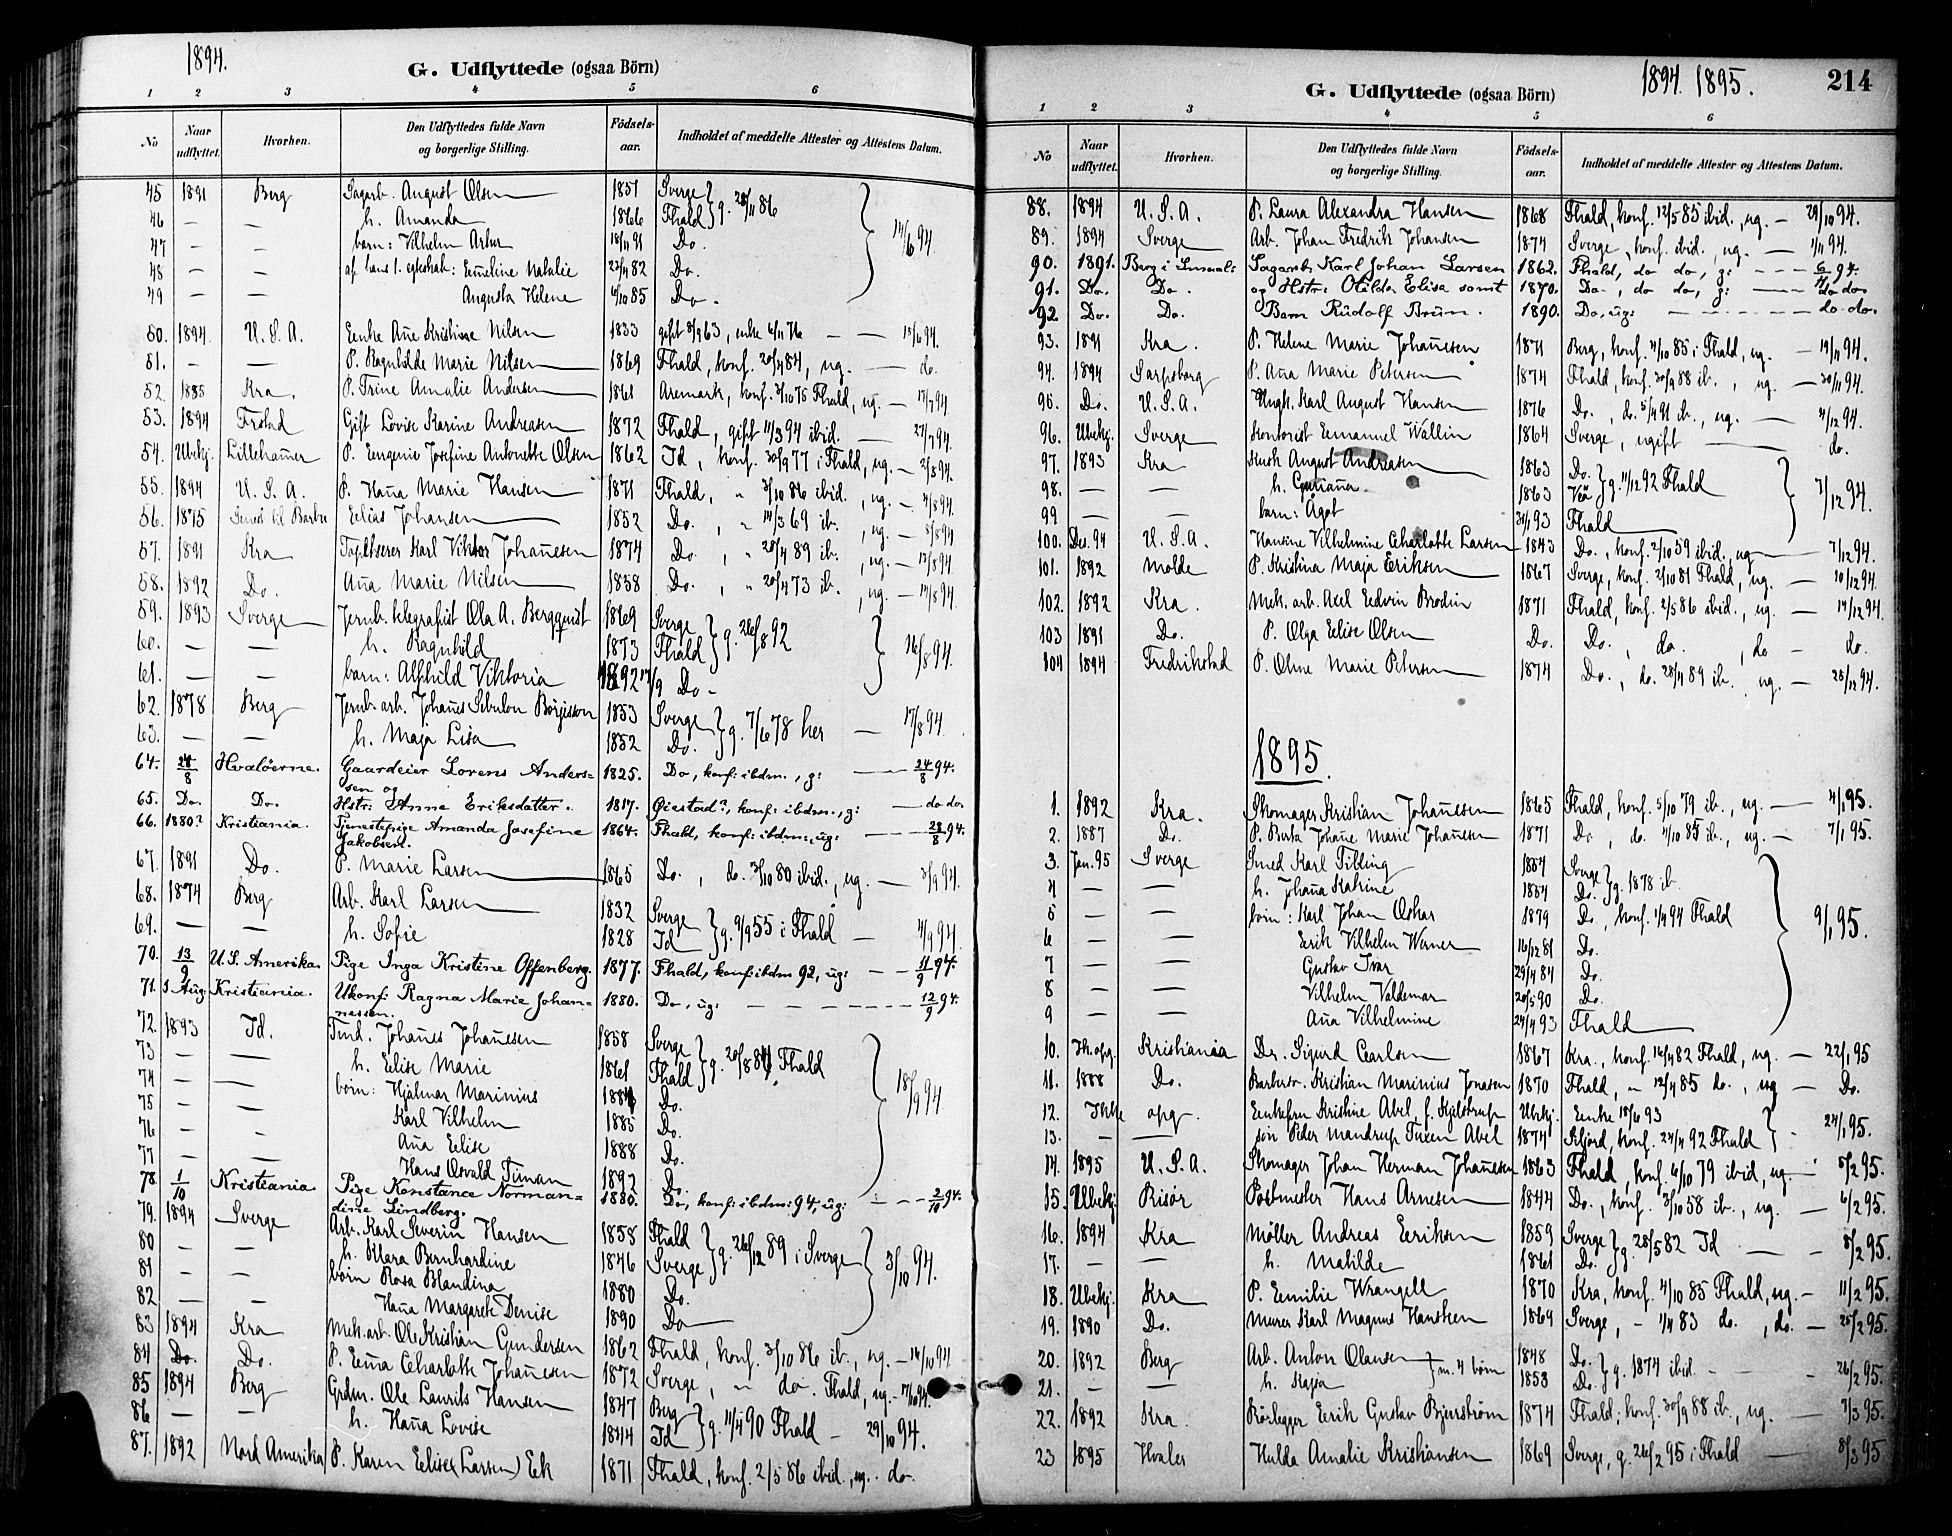 1894.
G. Udflyttede (ogsaa Börn)
1 2 3 4 5 6
No Naar udflyttet. Hvorhen. Den Udflyttedes fulde Navn og borgerlige Stilling. Födsels-aar. Indholdet af meddelte Attester og Attestens Datum.
45 1891 Berg Sagarb. August Olsen 1851 Sverge } g. 28/11 86
46 — — h. Amanda 1866 Fhald
47 — — barn: Vilhelm Artur 18/11 91 Do. 14/6 94.
48 — — af hans 1. egteskab: Emeline Natalie 22/11 82 Do.
49 — — Augusta Helene 6/10 85 Do.
50. 1894 U. S. A. Enke Ane Kristine Nilsen 1833 gift 8/9 63, enke 6/11 76 — 15/6 94.
51. — — P. Ragnhilde Marie Nilsen 1869 Fhald, konf. 20/4 84, ug. — do.
52. 1885 Kra. P. Trine Amalie Andersen 1861 Aremark, konf. 3/10 75 Fhald, ug. — 17/7 94
53. 1894 Frstad Gift Lovise Karine Andreasen 1872 Fhald, gift 11/3 94 ibid. — 27/7 94.
54. Ubekj. Lillehamer P. Eugenie Josefine Antonette Olsen 1862 Id, konf. 30/9 77 i Fhald, ug. — 2/8 94.
55. 1894 U. S. A. P. Hana Marie Hansen 1871 Fhald, " 3/10 86 ibid., ug. — 4/8 94.
56. 1875 til Barbu Elias Johansen 1852 Do. , " 14/3 69 ib. , ug. — 8/8 94
57. 1891 Kra Karl Viktor Johanesen 1874 Do. , " 28/4 89 ib. , ug. — 13/8 94.
58. 1892 Do. Ana Marie Nilsen 1858 Do. , " 20/4 73 ib. , ug. — 14/8 94.
59. 1893 Sverge Jernb. telegrafist Ola A. Bergquist 1869 Sverge } g. 26/8 92
60. — — h. Ragnhild 1873 Fhald 16/8 94.
61. — — barn: Alfhild Viktoria 1892 17/9 Do -
62. 1878 Berg Jernb. arb. Johanes Sebulon Börjesson 1853 Sverge } g. 7/6 78 her — 17/8 94.
63. — — h. Maja Lisa 1852 Do.
64. 24/8 Hvalöerne. Gaardeier Lorens Anders= 1825. Do, konf: ibdm., g: — 24/8 94.
sen og
65. Do. Do. Hstr: Anne Eriksdatter. 1817. Öiestad?, konf: ibdm., g: — do do.
66. 1880? Kristiania. Tjenestepige Amanda Josefine 1864. Fhald, konf: ibdm:, ug: — 28/8 94.
Jakobsen.
67. 1891 Do. P. Marie Larsen 1865 Do. , do. 3/10 80 ibid., ug. — 3/9 94.
68. 1874 Berg Arb. Karl Larsen 1832 Sverge } g. 9/9 55 i Fhald — 4/9 94
69. — h. Sofie 1828 Id
70. 13/9 U. S. Amerika. Pige Inga Kristine Offenberg. 1877. Fhald, konf: ibdm 92, ug: — 11/9 94.
71. 1 Aug. Kristiania. Ukonf: Ragna Marie Johan= 1880. Do, ug: — 12/9 94.
nessen.
72. 1893 Id. Johanes Johanesen 1858 Sverge } g. 20/8 84 Fhald
73 — — h. Elise Marie 1861 Fhald
74 — — börn: Hjalmar Marinius 1884 Do. 18/9 94
75 — — Karl Vilhelm 1885 Do.
76 — — Ana Elise 1888 Do.
77 — — Hans Osvald Timan 1892 Do.
78. 1/10 Kristiania. Pige Konstance Norman= 1880. Do, konf: ibdm: 94, ug: — 2/10 94.
dine Lindberg.
79. 1894 Sverge Arb. Karl Severin Hansen 1858 Fhald } g. 26/12 89 i Sverge
80 — — h. Klara Bernhardine 1846 Sverge 3/10 94.
81 — — börn Rosa Blandina 1880 Do.
82 — — Hana Margarete Denise 1890 Do
83 1894 Kra Mek. arb. Ole Kristian Gundersen 1862 Fhald, konf. 3/10 86 ib., ug. — 14/10 94
84 Do. Do. P. Ema Charlotte Johanesen 1872 Sverge, " do. Fhald, ug. —
85 1894 Berg Grdm. Ole Laurits Hansen 1847 Berg } g. 11/4 90 Fhald — 29/10 94.
86 — — h. Hana Lovise 1844 Id
87. 1892 Nord Amerika P. Karen Elise (Larsen) Eek 1871 Fhald, konf. 2/5 86 ibid., ug. do.
1894. 1895. 214
G. Udflyttede (ogsaa Börn)
1 2 3 4 5 6
No Naar udflyttet. Hvorhen. Den Udflyttedes fulde Navn og borgerlige Stilling. Födsels-aar. Indholdet af meddelte Attester og Attestens Datum.
88. 1894 U. S. A. P. Laura Alexandra Hansen 1868 Fhald, konf. 12/5 85 ibid., ug. — 29/10 94.
89. 1894 Sverge Arb. Johan Fredrik Johansen 1874 Sverge, konf. ibid., ug. — 1/11 94.
90. 1891. Berg i Smaal: Sagarb: Karl Johan Larsen 1862. Fhald, do do, g: — 6/11 94.
91. Do. Do. og Hstr: Otilda Elisa samt 1870. Do, do do, g: — do do
92 Do. Do. Barn Rudolf Brun. 1890. Do, ug: — do do.
93. 1891 Kra. P. Helene Marie Johanesen 1871 Berg, konf. 4/10 85 i Fhald, ug. — 19/11 94.
94. 1894 Sarpsborg P. Ana Marie Petersen 1874 Fhald, konf. 30/9 88 ib. , ug. — 30/11 94.
95. Do. U. S. A. Ungk. Karl August Hansen 1876 Do. , do. 5/4 91 ib., ug. — 4/12 94.
96. Ubekj. Sverge Kontorist Emanuel Wallin 1864 Sverge, ugift — do.
97. 1893 Kra August Andreasen 1863 Do. } g. 11/12 92 Fhald
98. — — h. 1863 7/12 94.
99 — — barn: Ågot 31/1 93 Fhald
100. Des. 94 U. S. A. Hansine Vilhelmine Charlotte Larsen 1843 Do., konf. 2/10 59 ibid., ug — 7/12 94.
101. 1892 Molde P. Kristina Maja Eriksen 1867 Sverge, konf. 2/10 81 Fhald, ug. — 10/12 94.
102. 1892 Kra. Mek. arb. Axel Edvin Brodin 1871 Fhald, konf. 2/5 86 ibid., ug. — 14/12 94.
103 1891 Do. P. Olga Elise Olsen Do. Do. , do. , do — do.
104 1894 Fredrikstad P. Oline Marie Petersen 1874 Do., do. 28/4 89 ib. ug. — 28/12 94.
1895.
1. 1892 Kra. Skomager Kristian Johanesen 1865 Fhald, konf. 5/10 79 ib., ug. — 4/1 95.
2. 1887 Do. P. Berta Johane Marie Johanesen 1871 Do , do. 4/10 85 ib., ug. — 7/1 95.
3. Jan. 95 Sverge Smed Karl Tilling 1854 Sverge } g. 1878 ib.
4 — — h. Johana Katrine 1854 Do.
5 — — börn: Karl Johan Oskar 1879 Do., konf. 1/4 94 Fhald 9/1 95.
6 — — Erik Vilhelm Werner 16/12 81 Do.
7 — — Gustav Ivar 29/4 84 Do.
8 — — Vilhelm Valdemar 20/5 90 Do.
9 — — Ana Vilhelmine 24/4 93 Fhald
10. Ik. opg. Kristiania Dr. Sigurd Carlsen 1867 Kra., konf. 16/4 82 Fhald, ug. — 22/1 95
11. 1888 Do. Barberso. Kristian Marinius Jonasen 1870 Fhald, " 12/4 85 do., ug — Do.
12. Ikke opg. Enkefru Kristine Abel, f. Kjelstrup Ubekj. Enke 18/6 93
13. — — sön Peder Mandrup Tuxen Abel 1874 konf. 24/4 92 Fhald } - 24/1 95.
14. 1895 U. S. A. Skomager Johan Herman Johanesen 1863 Fhald, konf. 6/10 79 ibid, ug. — 5/2 95.
15. Ubekj. Risör Postmester Hans Arnesen 1844 Do., konf. 3/10 58 ib., ug. — 6/2 95.
16. 1894 Kra Möller Andreas Eriksen 1859 Sverge } g. 28/5 82 Id — 8/2 95.
17. — — h. Matilde 1861 Do.
18. Ubekj. Kra P. Emilie Wrangell 1870 Kra, konf. 4/10 85 Fhald, ug. — 11/2 95.
19. 1890 Do. Murer Karl Magnus Hansteen 1869 Sverge, — 1/4 83 do. , do. — 25/2 95.
20. 1892 Berg Arb. Anton Olausen } m. 4 börn 1848 Do. } g. 1874 ibid. — 26/2 95.
21. — — h. Kajsa 1853 Do.
22. 1892 Kra. Rörlegger Erik Gustav Bjurström 1874 Fhald, konf. 30/9 88 ib., ug. — 7/3 95.
23 1895 Hvaler Hulda Amalie Kristiansen 1869 Sverge, g. 26/2 95 i Fhald — 8/3 95